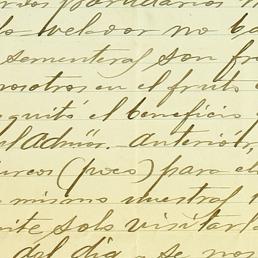 particulares
velador no
sementeras son
nosotros en el fruto
quitó el beneficio
del admōr. anterior,
(poco) para el
mismo muestras
solo visitarla
del dia, se nos